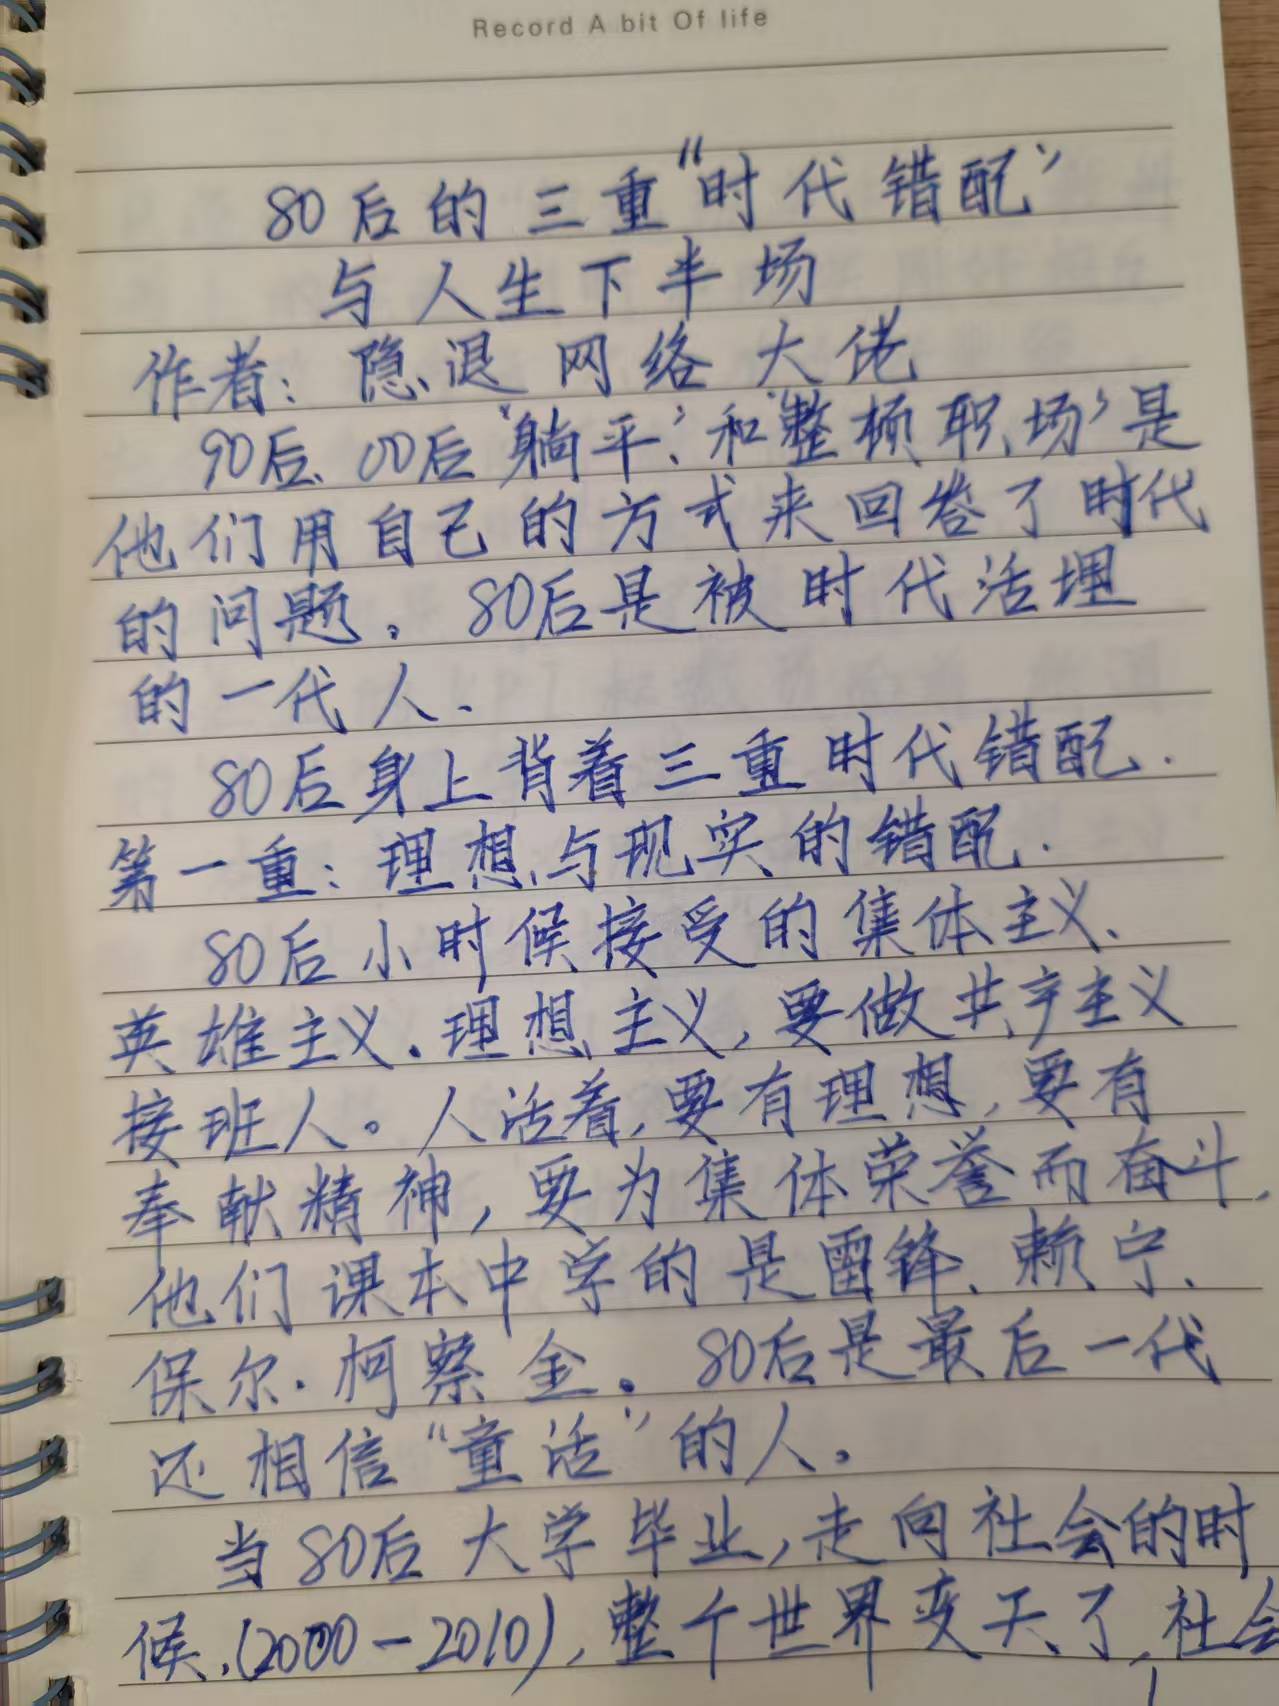 Record A bit Of life
80后的三重“时代错配”
与人生下半场
作者：隐退网络大佬
90后、00后“躺平”、和“整顿职场”是
他们用自己的方式来回答了时代
的问题。80后是被时代活埋
的一代人.
80后身上背着三重时代错配.
第一重：理想与现实的错配.
80后小时候接受的集体主义、
英雄主义.理想主义,要做共产主义
接班人。人活着,要有理想,要有
奉献精神,要为集体荣誉而奋斗,
他们课本中学的是雷锋、赖宁、
保尔·柯察金。80后是最后一代
还相信“童话”的人。
当80后大学毕业,走向社会的时
候,(2000-2010),整个世界变天了,社会